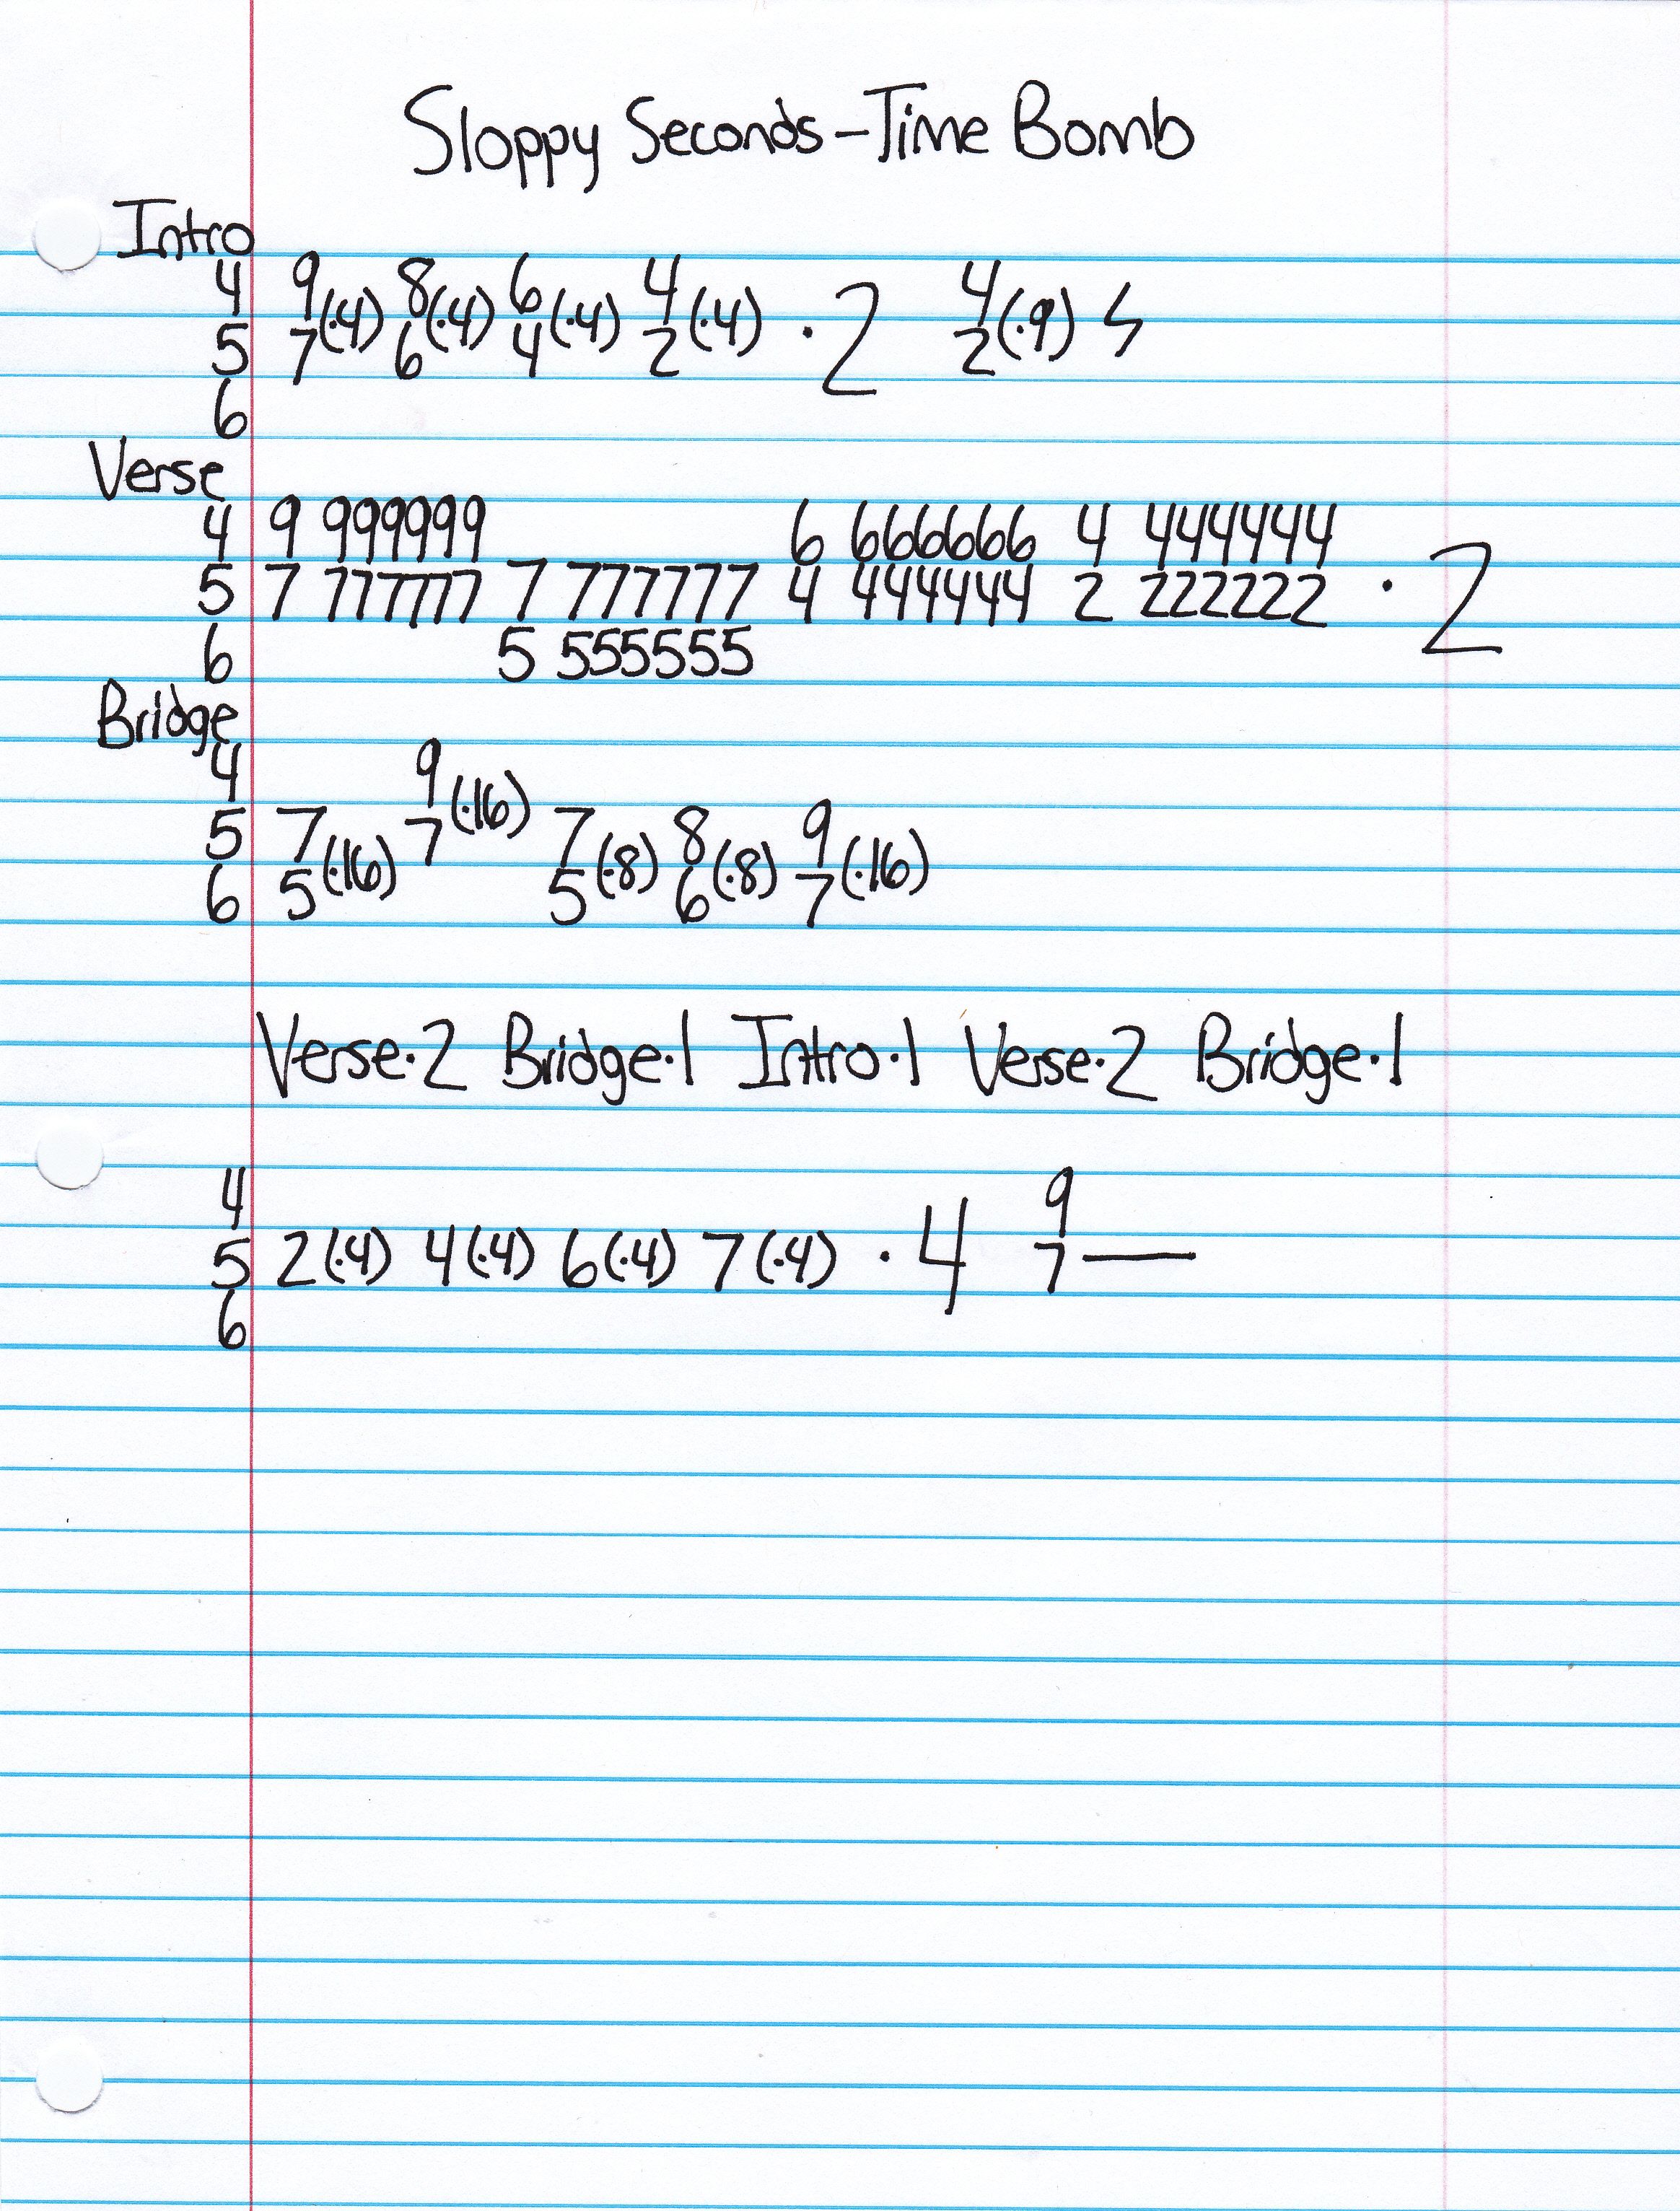 Sloppy Seconds - Time Bomb
Intro
4 9 8 6 4 4
(·4) (·4) (·4) (·4) · 2 (·9)
5 7 6 4 2 2
6
Verse
4 9 999999 6 666666 4 444444
5 7 777777 7 777777 4 444444 2 222222 · 2
6 5 555555
Bridge
4 9
(·16)
5 7 7 7 8 9
(·16) (·8) (·8) (·16)
6 5 5 6 7
Verse·2 Bridge·1 Intro·1 Verse·2 Bridge·1
4 9
5 2(·4) 4(·4) 6(·4) 7(·4) · 4 7—
6